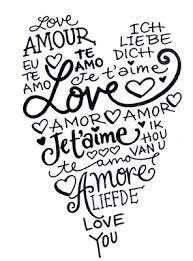 Love ICH
AMOUR LIEBE
EU TE DICH
TE AMO
AMO Je t'aime
Love
AMOR AMOR
Je t'aime IK
HOU
te amo VAN U
Amore
LIEFDE
LOVE
YOU